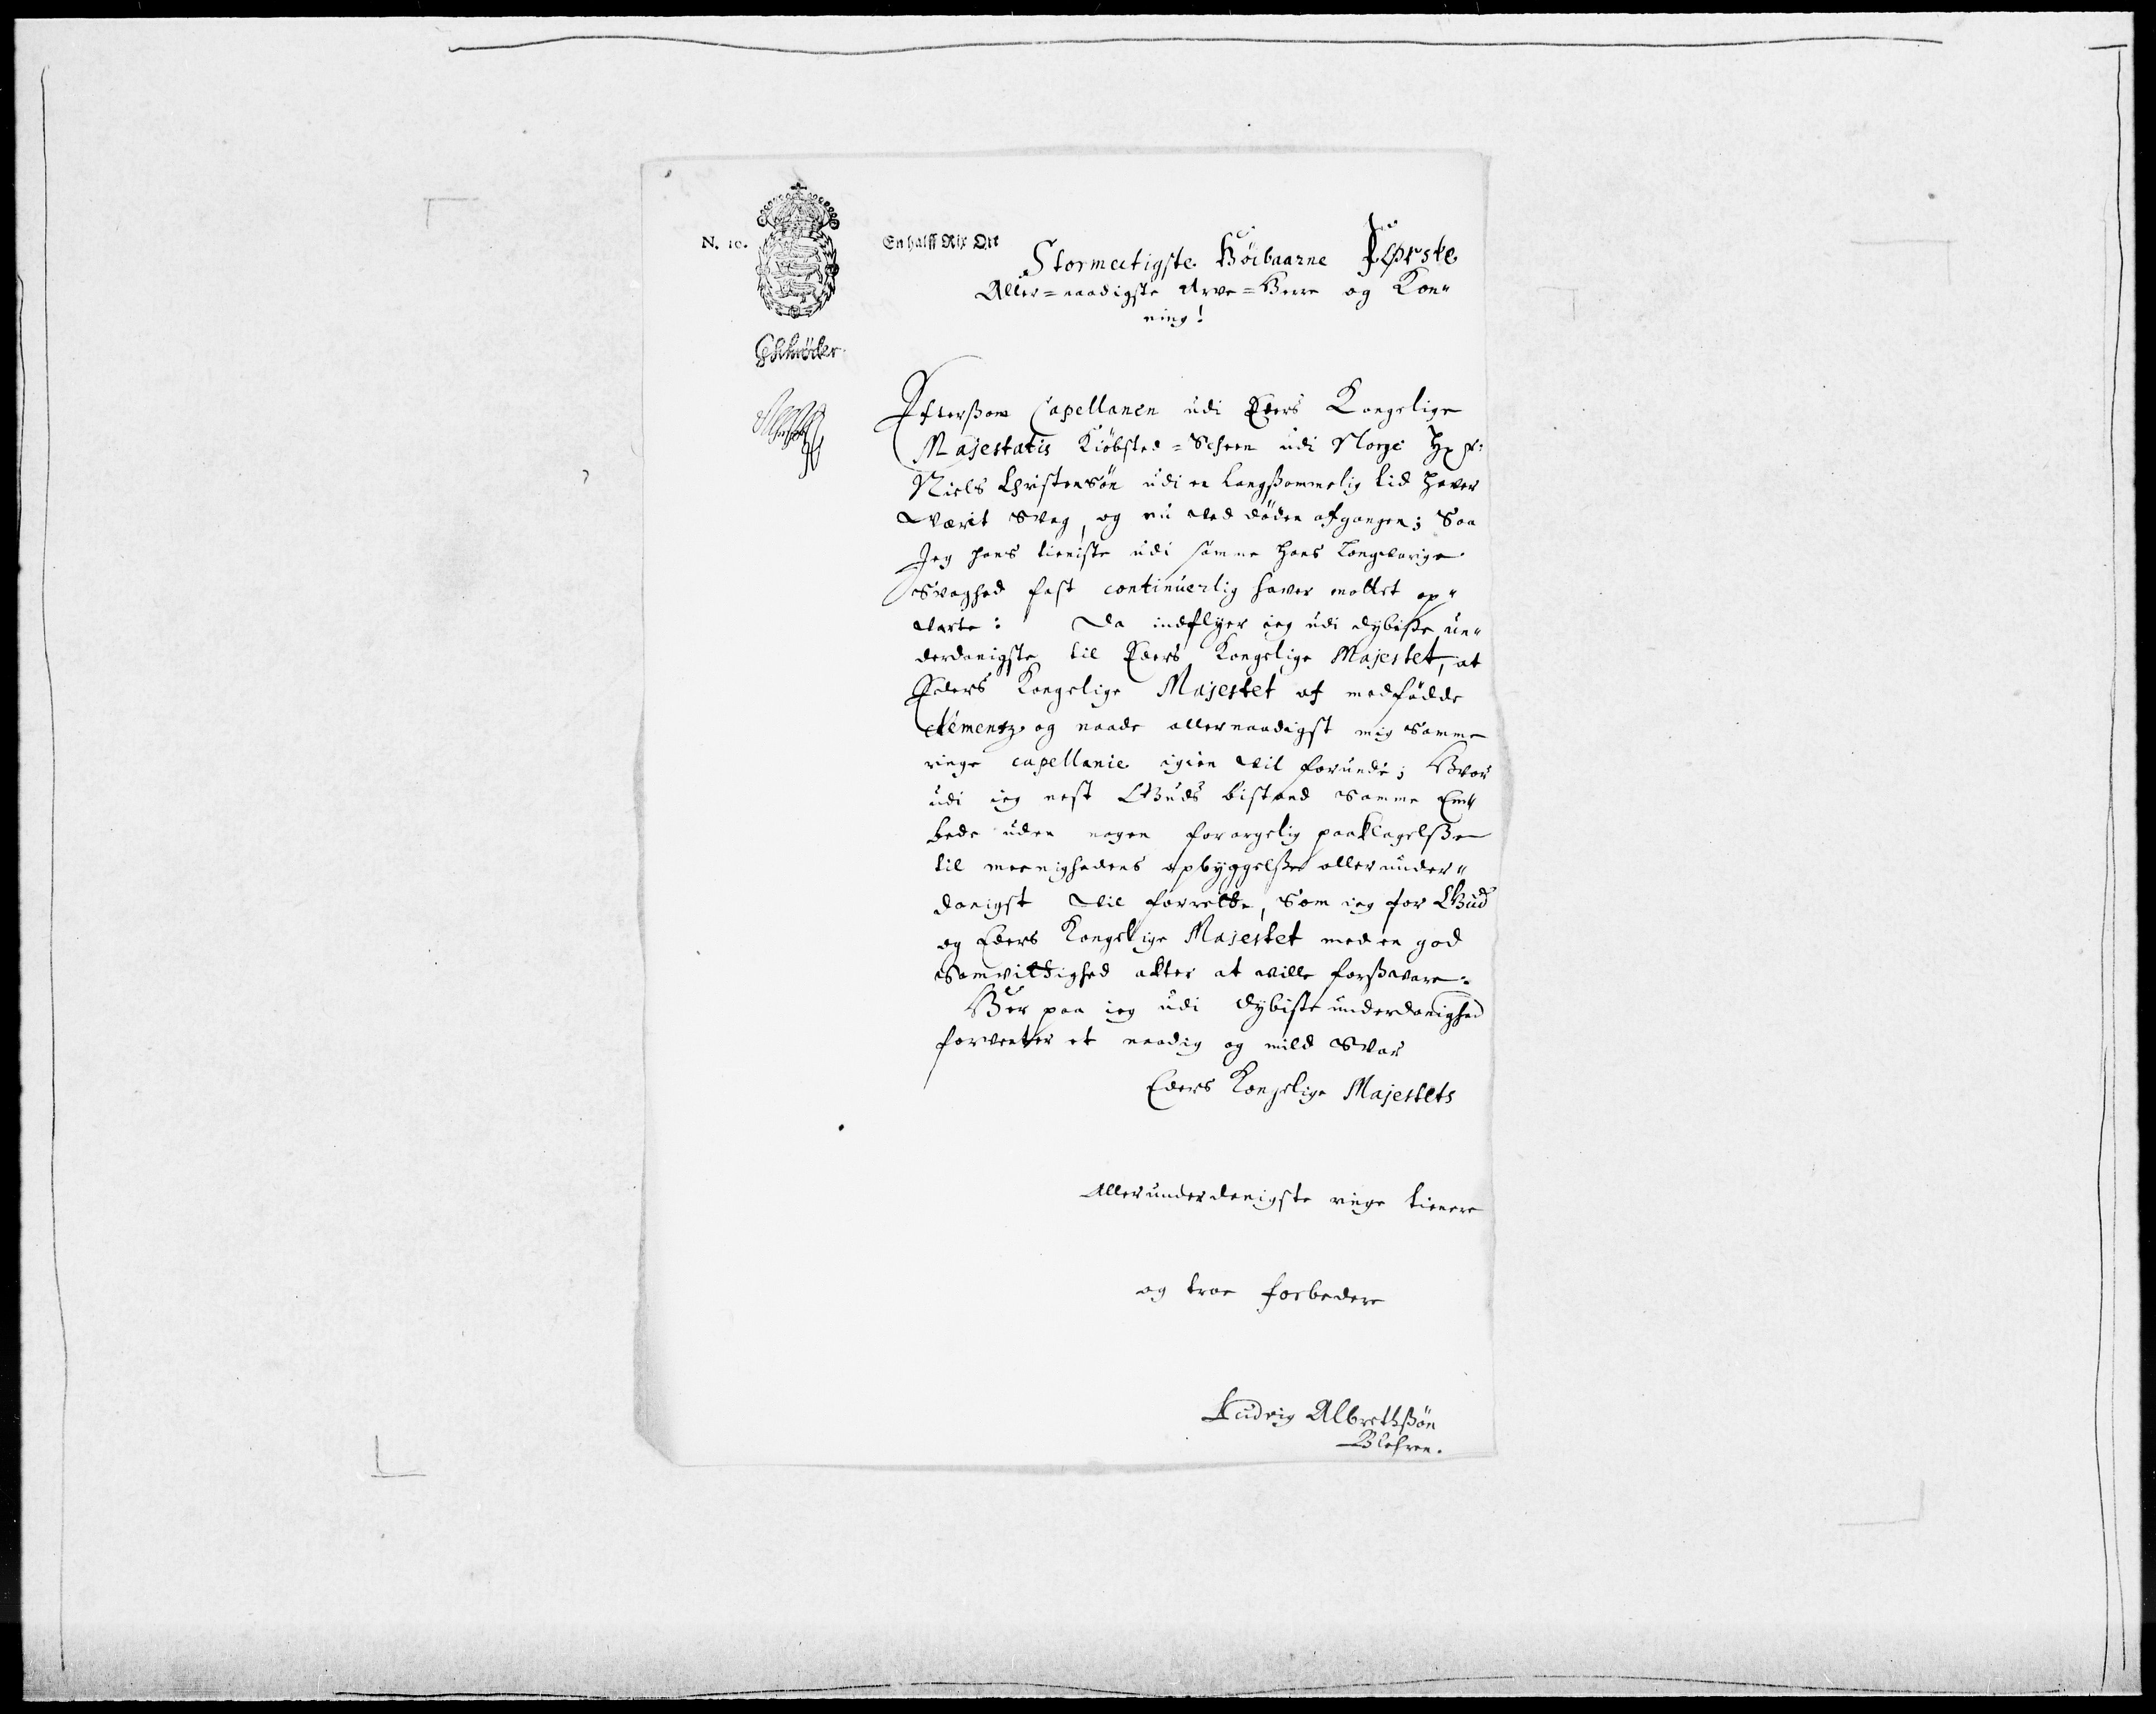 N. 10.
En halff Rix Ort
Stormectigste Höibaarne Første
Aller=naadigste Arve=Herre og Kon"
ning!
Schröder
Efterßom Capellanen udi Eders Kongelige
Majestatis Kiöbsted=Scheen udi Norge Hr
Niels Christensön udi en langßommelig tid haver
værit svag, og nu ved döden afgangen; Saa
Jeg hans tieniste udi samme hans langvarige
Svaghed fast continuerlig haver mottet op"
varte: Da indflyer ieg udi dybiste un"
derdanigste til Eders Kongelige Majestet, at
Eders Kongelige Majestet af medfödde
clementz og naade allernaadigst mig samme
ringe capellanie igien vil forunde; Hvor
udi ieg nest Guds bistand samme Em"
bede uden nogen forargelig paaklagelße
til meenighedens opbyggelße allerunder"
danigst vil forrette, som ieg for Gud
og Eders Kongelige Majestet med en god
Samvittighed akter at ville forßvare.
Her paa ieg udi dybiste underdanighed
forventer et naadig og mild Svar
Eders Kongelige Majestets
Allerunderdanigste ringe tienere
og troe forbedere
Ludvig Albrethßön
Blehren.